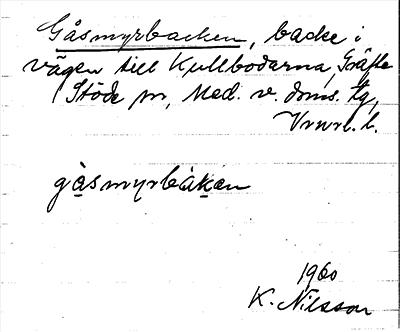 Gåsmyrbacken, backe i
vägen till Kullbodarna, Gräfte
Stöde sn, Med. v. doms. tg,
Vnrl. l.
gåsmyrbàkan
1960
K. Nilsson